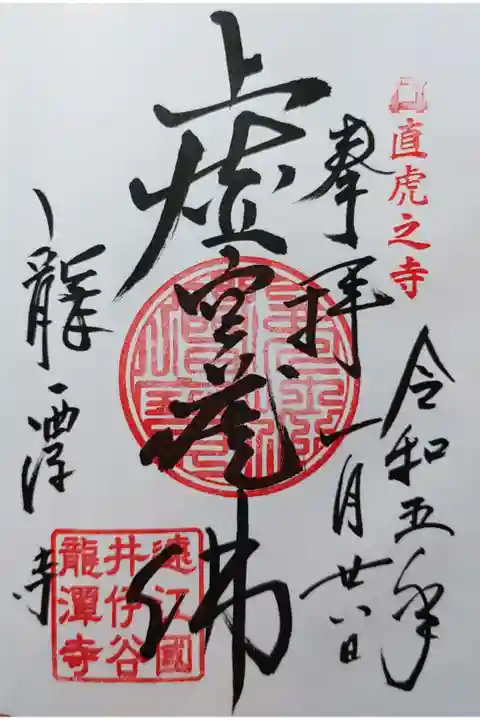 直虎之寺
奉拝
令和五年
一月廿八日
虚空蔵佛
龍潭寺
遠江國
井伊谷
龍潭寺